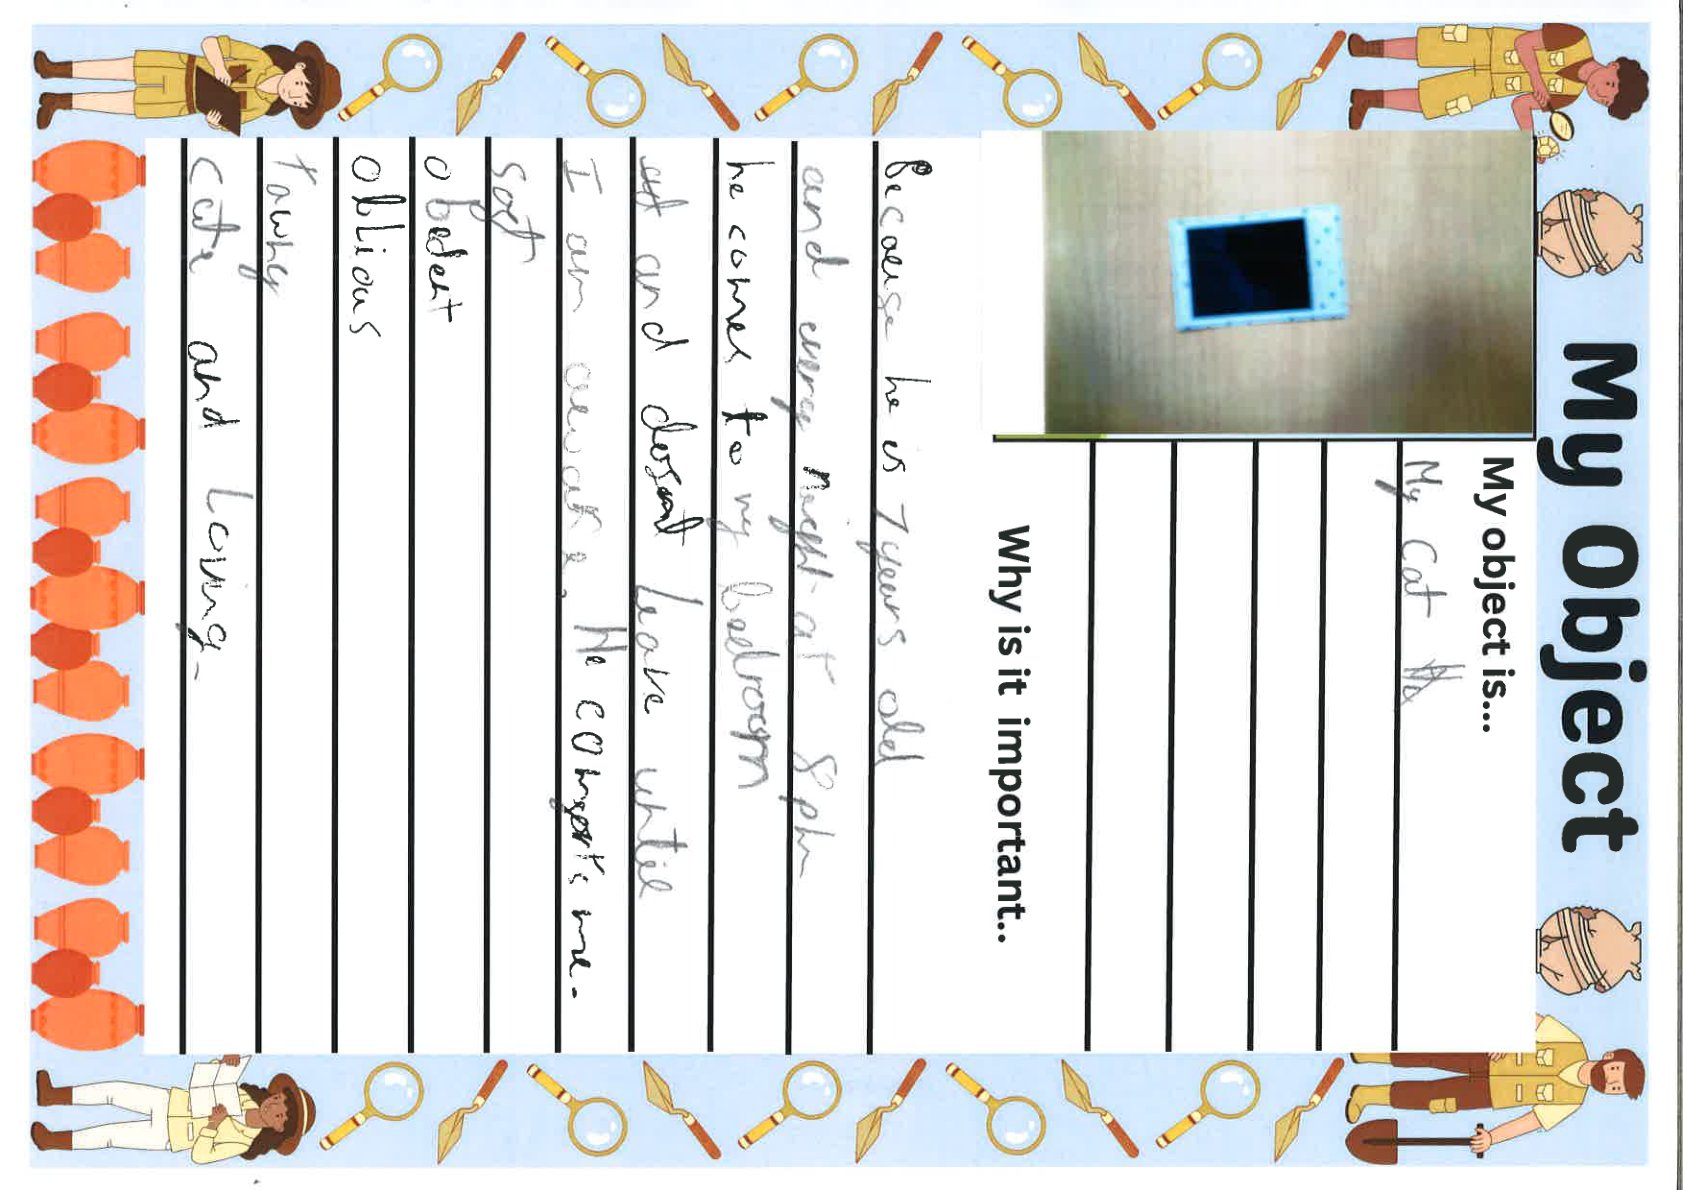 My Object
My object is...
My Cat
Why is it important..
Because he is 7 years old
and every night at 8pm
he comes to my bedroom
and dosent Leave until
I am awake. He comforts me.
soft
obedent
oblious
tawny
cute and Loving.